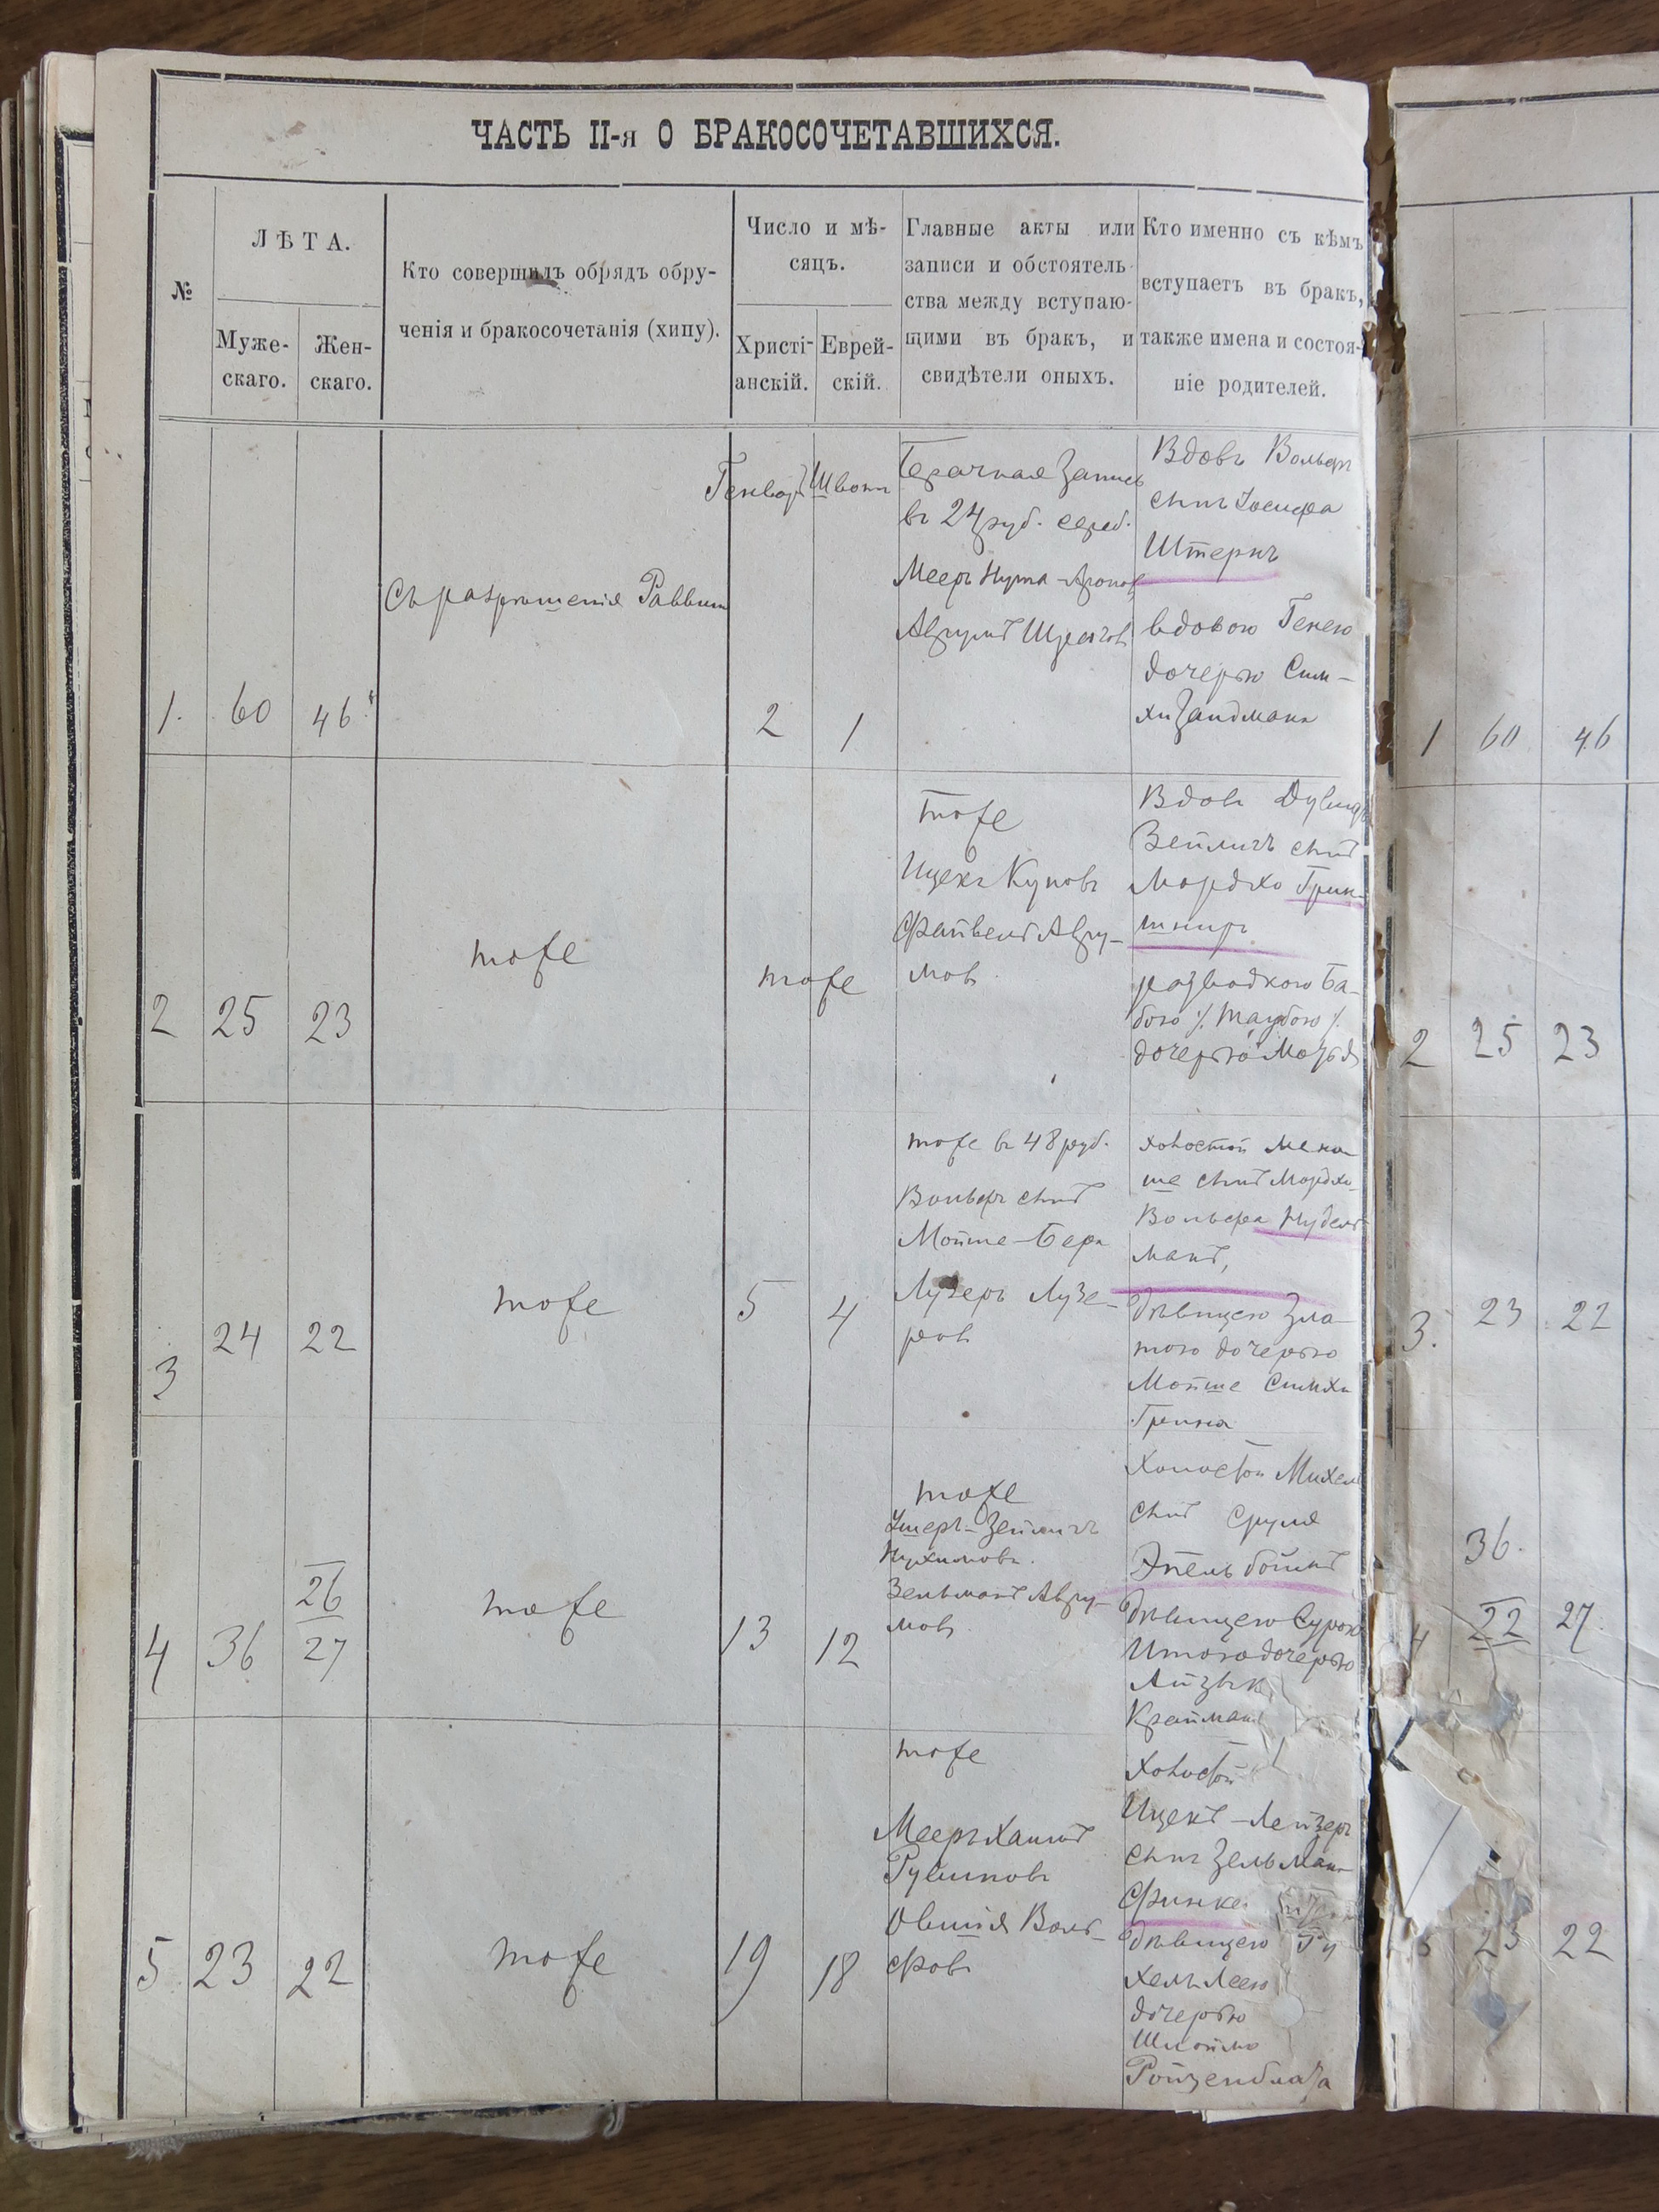 ЧАСТЬ II-я О БРАКОСОЧЕТАВШИХСЯ.
№
ЛѢТА.
Муже-
скаго.
Жен-
скаго.
Кто совершилъ обрядъ обру-
ченія и бракосочетанія (хипу).
Число и мѣ-
сяцъ.
Христі-
анскій.
Еврей-
скій.
Главные акты или
записи и обстоятель-
ства между вступаю-
щими въ бракъ, и
свидѣтели оныхъ.
Кто именно съ кѣмъ
вступаетъ въ бракъ,
также имена и состоя-
ніе родителей.
1.
60
46
Съ разрѣшенія Раввин
Генвар
2
1
запись
въ 24 руб. сереб.
Мееръ Нута
Аврумъ
Вдовъ Вольфъ
сынъ Иосифа
Штернъ
вдовою Генею
дочерью Сим-
хи Зандмана
2
25
23
тоже
тоже
тоже
Ицекъ Куповъ
Файвелъ Авру-
мов
Вдовъ
Зейлигъ сынъ
Мордко Грин-
шпиръ
разводкою Ба-
бою ٪ Таубою ٪
дочерью
3
24
22
тоже
5
4
тоже въ 48 руб.
Вольфъ сынъ
Мойше-Бера
Лузеръ Лузе-
ров
холостой Мена-
ше сынъ Мордко
Вольфа Нудель
манъ,
дѣвицею Зла-
тою дочерью
Мойше Симхи
Грина
4
36
26
27
тоже
13
12
тоже
Ушеръ-Зейлигъ
Нухимовъ.
Зельманъ Авру-
мов
Холостой Михель
сынъ Сруля
Эпельбоймъ
дѣвицею Сурою
Итою дочерью
Айзык
Крайман
5
23
22
тоже
19
18
тоже
Мееръ Хаимъ
Рувиновъ
Овшія Воль-
фовъ
холостой
Ицекъ-Лейзеръ
сынъ Зельман
Финке
дѣвицею Ру
хель Леею
дочерью
Шлоймо
Ройзенблата
1
60
46
2
25
23
3.
23
22
36.
4
22
27.
5
23
22